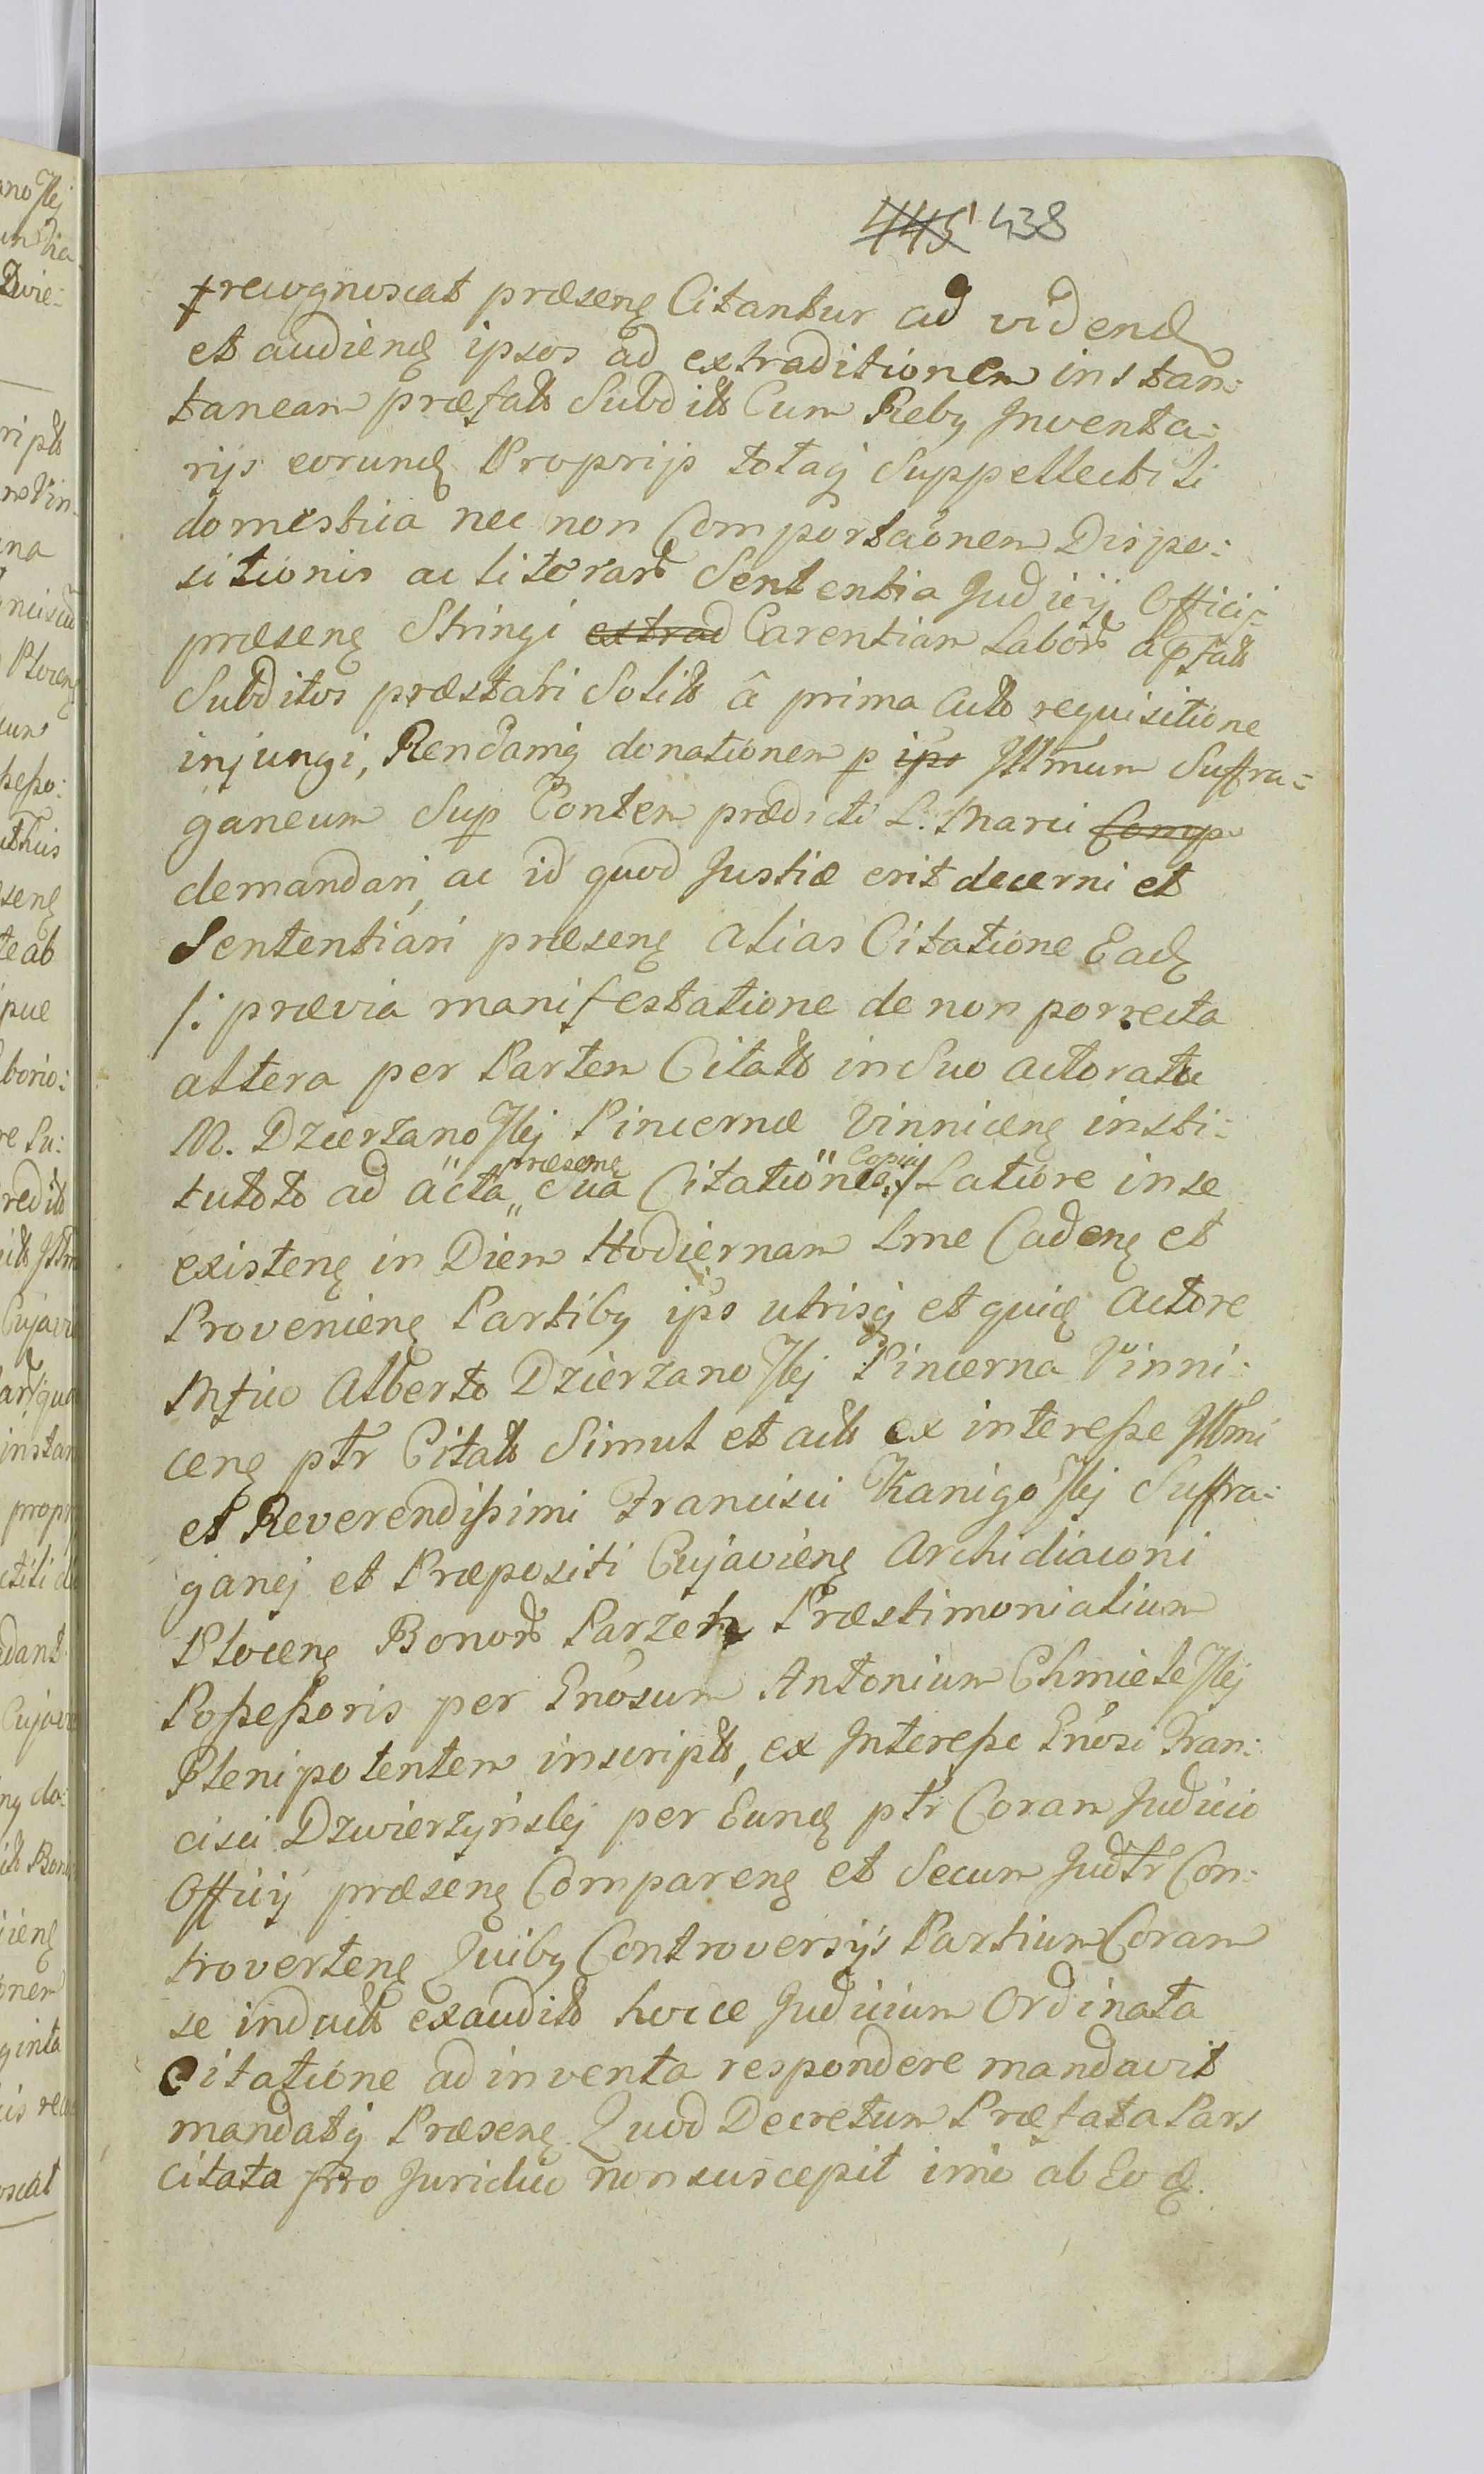 445 438
recognoscat præsenς Citantur ad videndς
et audiendς ipsos ad extraditionem instan:
taneam præfatt Subditt Cum Rebꝫ Inventa:
rijs eorundς Proprijs totaqꝫ Suppellectili
domestica nec non Comportaonem Dispo:
sitionis ac litorarum Sententia Judicij Officij
præsenς Stringi extrad Carentiam Labor a pfatt
Subditos præstari Solitt â prima Actt requisitione
injungi, Rendamqꝫ donationem p ipo Illmum Suffra:
ganeum Sup Pontem prædicti S. Marci Comp
demandari, ac id quod Justiæ erit decerni et
Sententiari præsenς alias Citatione Eadς
/: prævia manifestatione de non porrecta
altera per Partem Citatt in Suo actoratu
M. Dzierzanoskj Pincernæ Vinnicenς insti:
tutoto ad acta præsenς Sua Citationis Copia :/ Latiore in se
existenς in Diem Hodiernam Lme Cadenς et
Provenienς Partibꝫ ips utrisqꝫ et quidς Actore
Mfico Alberto Dzierzanoskj Pincerna Vinni:
cenς ptr Citatt Simul et actt ex interesse Illmi
et Reverendissimi Francisci Kanigoskj Suffra:
ganej et Præpositi Cujavienς Archidiaconi
Plocenς Bonor Parzeń Præstimonialium
Possessoris per Gnosum Antonium Chmieleskj
Plenipotentem inscriptt, ex Interesse Gnosi Fran:
cisci Dzwierzynskj per Eundς ptr Coram Judicio
Officij præsenς Comparenς et Secum Judtr Con:
trovertenς Quibꝫ Controversijs Partium Coram
se inductt exauditt hocce Judicium Ordinata
Citatione adinventa respondere mandavit
mandatqꝫ Præsenς Quod Decretum Præfata Pars
citata pro Juridico non suscepit imo ab Eodς.